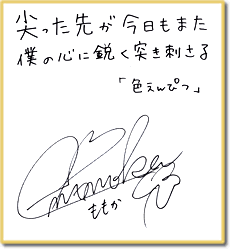 尖った先が今日もまた
僕の心に鋭く突き刺さる
「色えんぴつ」
ももか